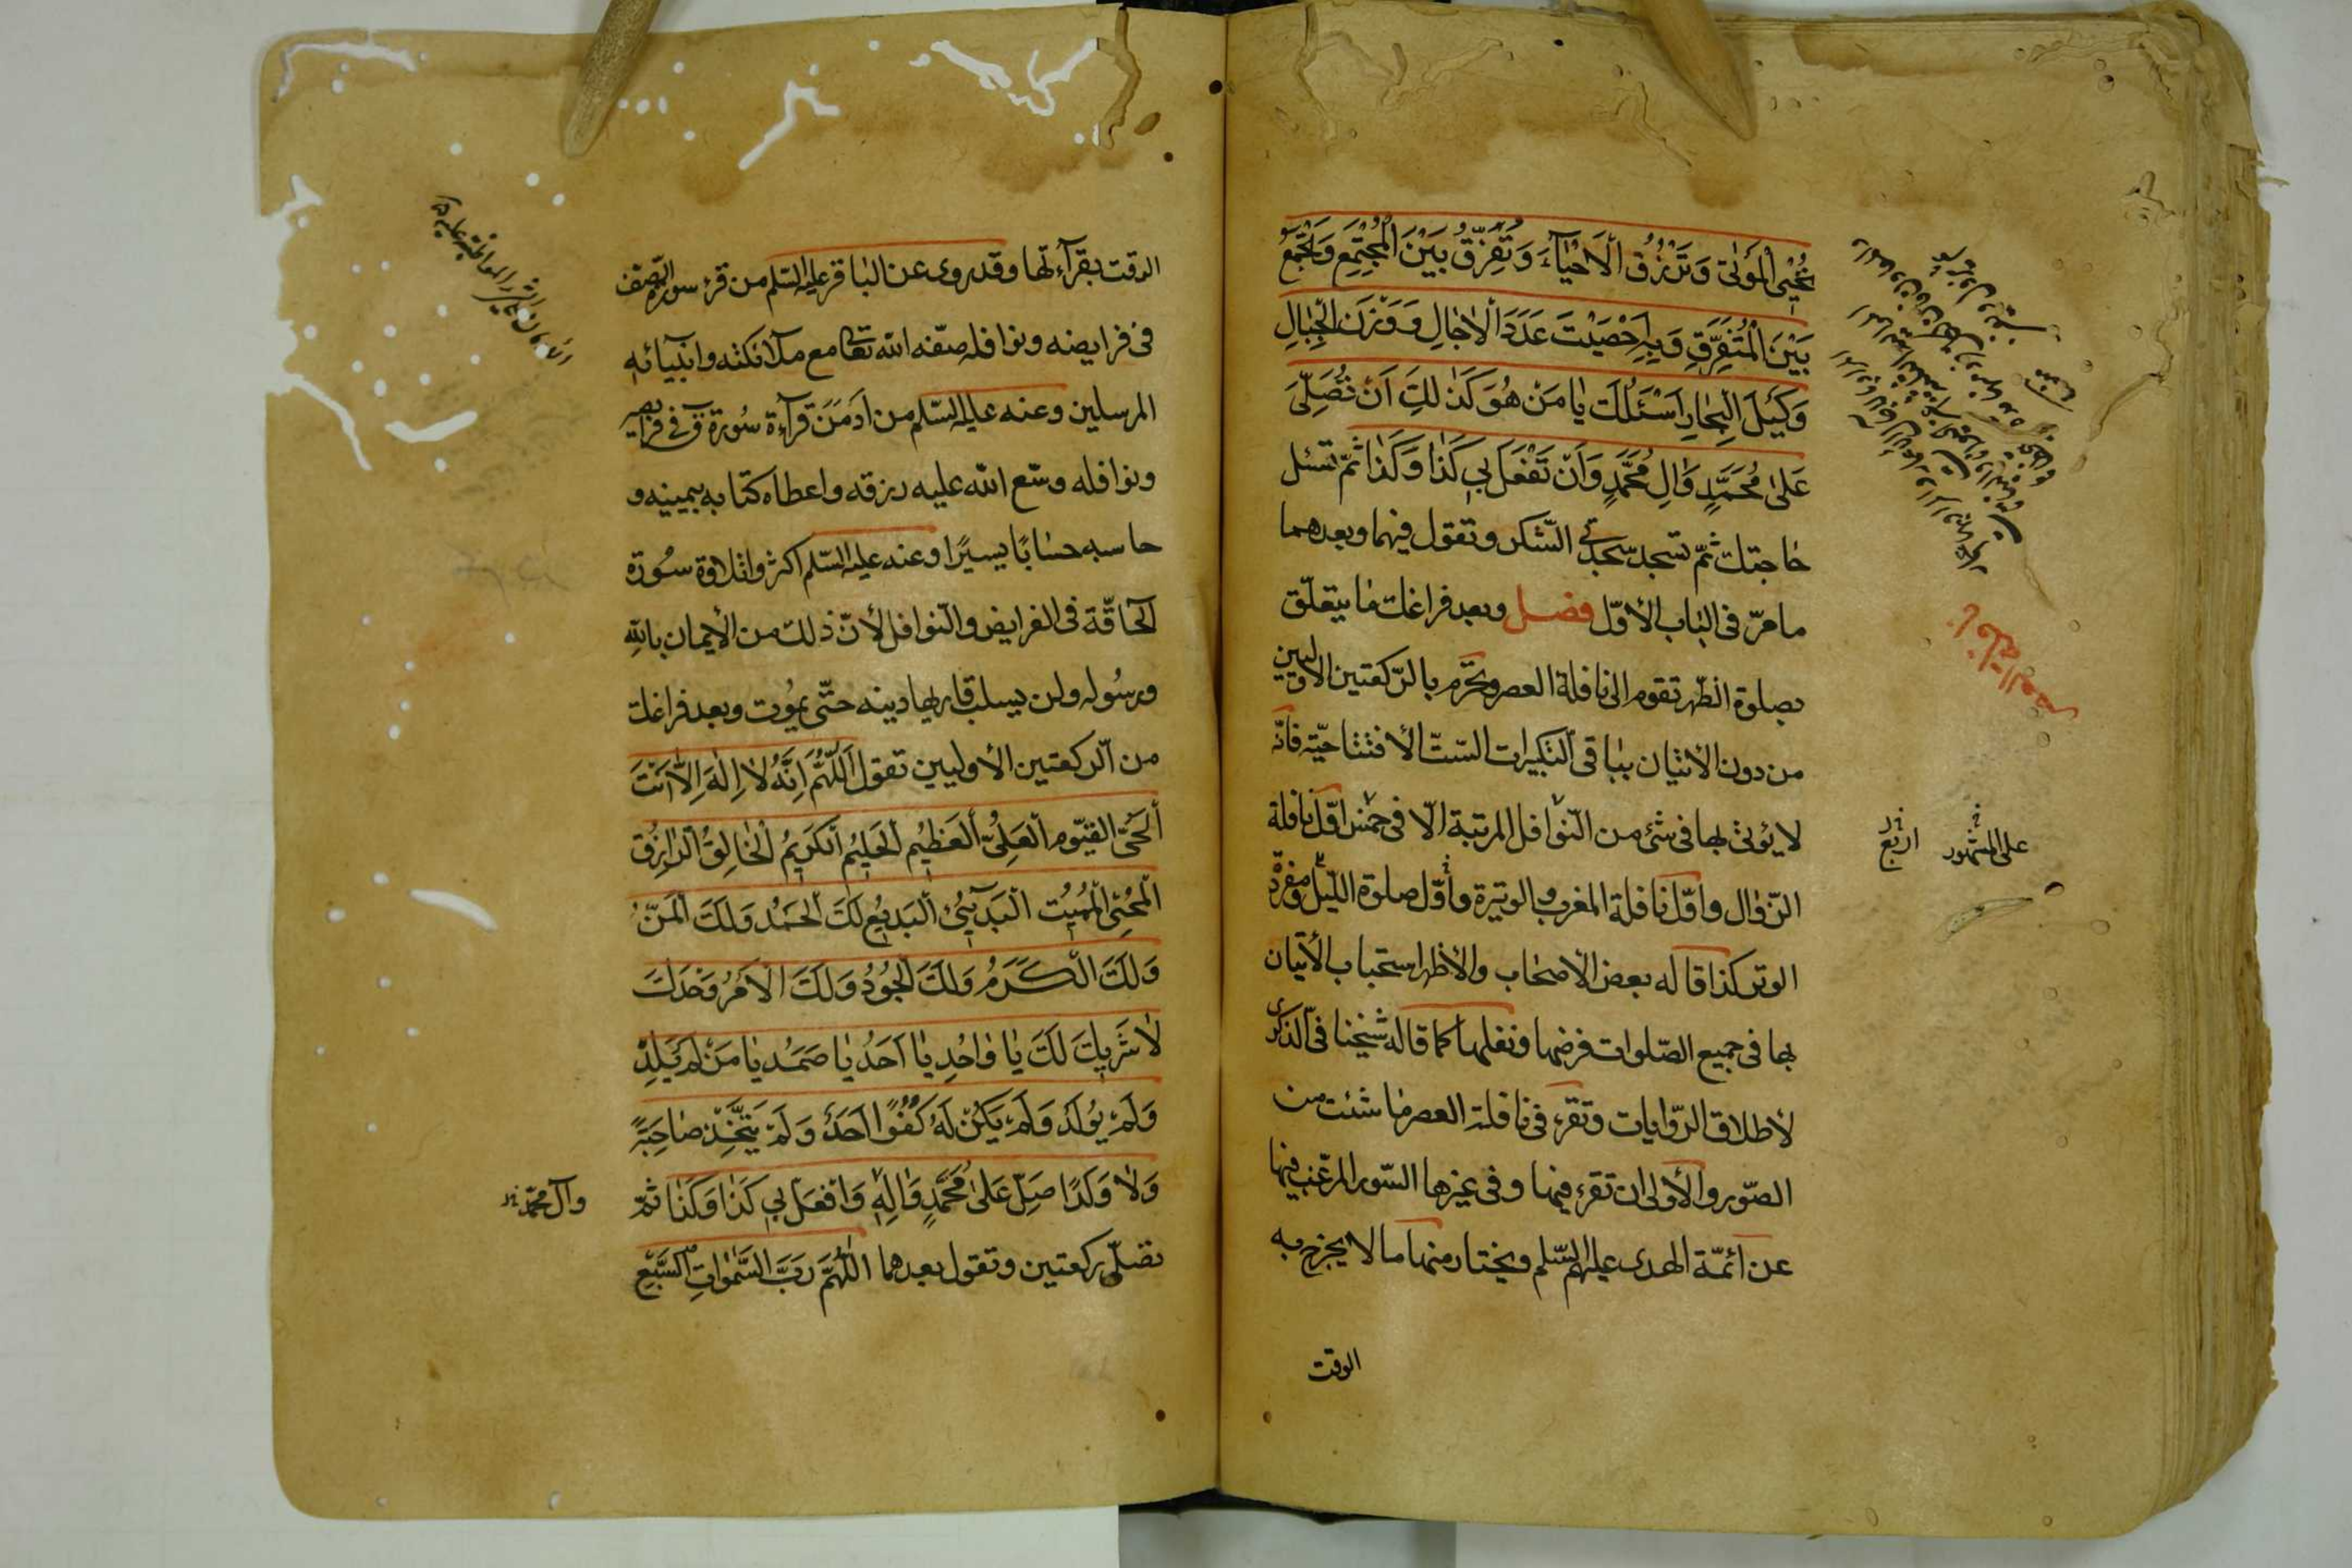 تُحْيِي الْمَوْتٰى وَتَرْزُقُ الْاَحْيٰآءَ وَتُفَرِّقُ بَيْنَ الْمُجْتَمِعِ وَتَجْمَعُ
بَيْنَ الْمُتَفَرِّقِ وَبِهِ اَحْصَيْتَ عَدَدَ الْاٰجٰالِ وَوَزْنَ الْجِبٰالِ
وَكَيْلَ الْبِحٰارِ اَسْئَلُكَ يٰا مَنْ هُوَ كَذٰلِكَ اَنْ تُصَلِّىَ
عَلىٰ مُحَمَّدٍ وَاٰلِ مُحَمَّدٍ وَاَنْ تَفْعَلَ بِي كَذٰا وَكَذٰا ثمّ تسئل
حٰاجتك ثمّ تسجد سجدتي الشّكر وتقول فيهما وبعدهما
ما مرّ فى البٰاب الأوّل فصل وبعد فراغك مٰا يتعلّق
بصلوة الظّهر تقوم الى نافلة العصر وتحرّم بالرّكعتين الاوليين
من دون الأتيان ببٰاقى التكبيرات السّتّ الأفتتاحيّة فانّه
لا يؤتى بها فى شئ من النّوافل المرتبة الّا فى خمس اوّل نافلة
الزّوٰال واوّل نافلة المغرب والوتيرة واوّل صلوة اللّيل ومفردة
الوتر كذا قاله بعض الأصحٰاب والأظهر استحباب الأتيان
بها فى جميع الصّلوات فرضها ونفلها كما قاله شيخنا فى الذكرى
لأطلاق الرّوايات وتقرء فى نافلة العصر مٰا شئت من
السّور والأولى ان تقرء فيهٰا وفى غيرها السّور المرغّب فيها
عن أئمّة الهدى عليهم السّلم ويختار منهاما لا يخرج به
الوقت
على المشهور
اربع
الوقت بقرآءتها وقد روى عن البٰاقر عليه السّلم من قرء سورة الصّف
فى فرايضه ونوافله صفّه الله تعٰا مع ملآئكته وانبيآئه
المرسلين وعنه عليه السّلم من اَدمَنَ قرآءة سُورة ق فى فرايضه
ونوافله وسّع الله عليه رزقه واعطاه كتابه بيمينه و
حاسبه حسٰابًا يسيرًا وعنه عليه السّلم اكثروا تلاوة سُورة
الحآقّة فى الفرايض والنوافل لأنّ ذلك من الأيمان بالله
ورسُوله ولن يسلب قاريها دينه حتّى يموُت وبعد فراغك
من الرّكعتين الأوليين تقول اَللّٰهُمَّ اِنَّهُ لٰا اِلٰهَ اِلّٰا اَنْتَ
اَلْحَىُّ القَيّوم العَلِىُّ العَظيمُ الحَليمُ الكَريمُ الخٰالِقُ الرّازِقُ
الْمُحْيِى الْمُميتُ الْبَدِئُ الْبَديعُ لَكَ الْحَمْدُ وَلَكَ الْمَنُّ
وَلَكَ الْكَرَمُ وَلَكَ الْجُودُ وَلَكَ الْاَمْرُ وَحْدَكَ
لٰا شَريكَ لَكَ يٰا وٰاحِدُ يٰا اَحَدُ يٰا صَمَدُ يٰا مَنْ لَمْ يَلِدْ
وَلَمْ يُولَدْ وَلَمْ يَكُنْ لَهُ كُفُوًا اَحَدٌ وَلَمْ يَتَّخِذْ صٰاحِبَةً
وَلٰا وَلَدًا صَلِّ عَلىٰ مُحَمَّدٍ وَاٰلِهِ وَافْعَلْ بِي كَذٰا وَكَذٰا ثمّ
تصلّى ركعتين وتقول بعدهما اَللّٰهُمَّ رَبَّ السَّمٰوٰاتِ السَّبْعِ
وآل محمّد